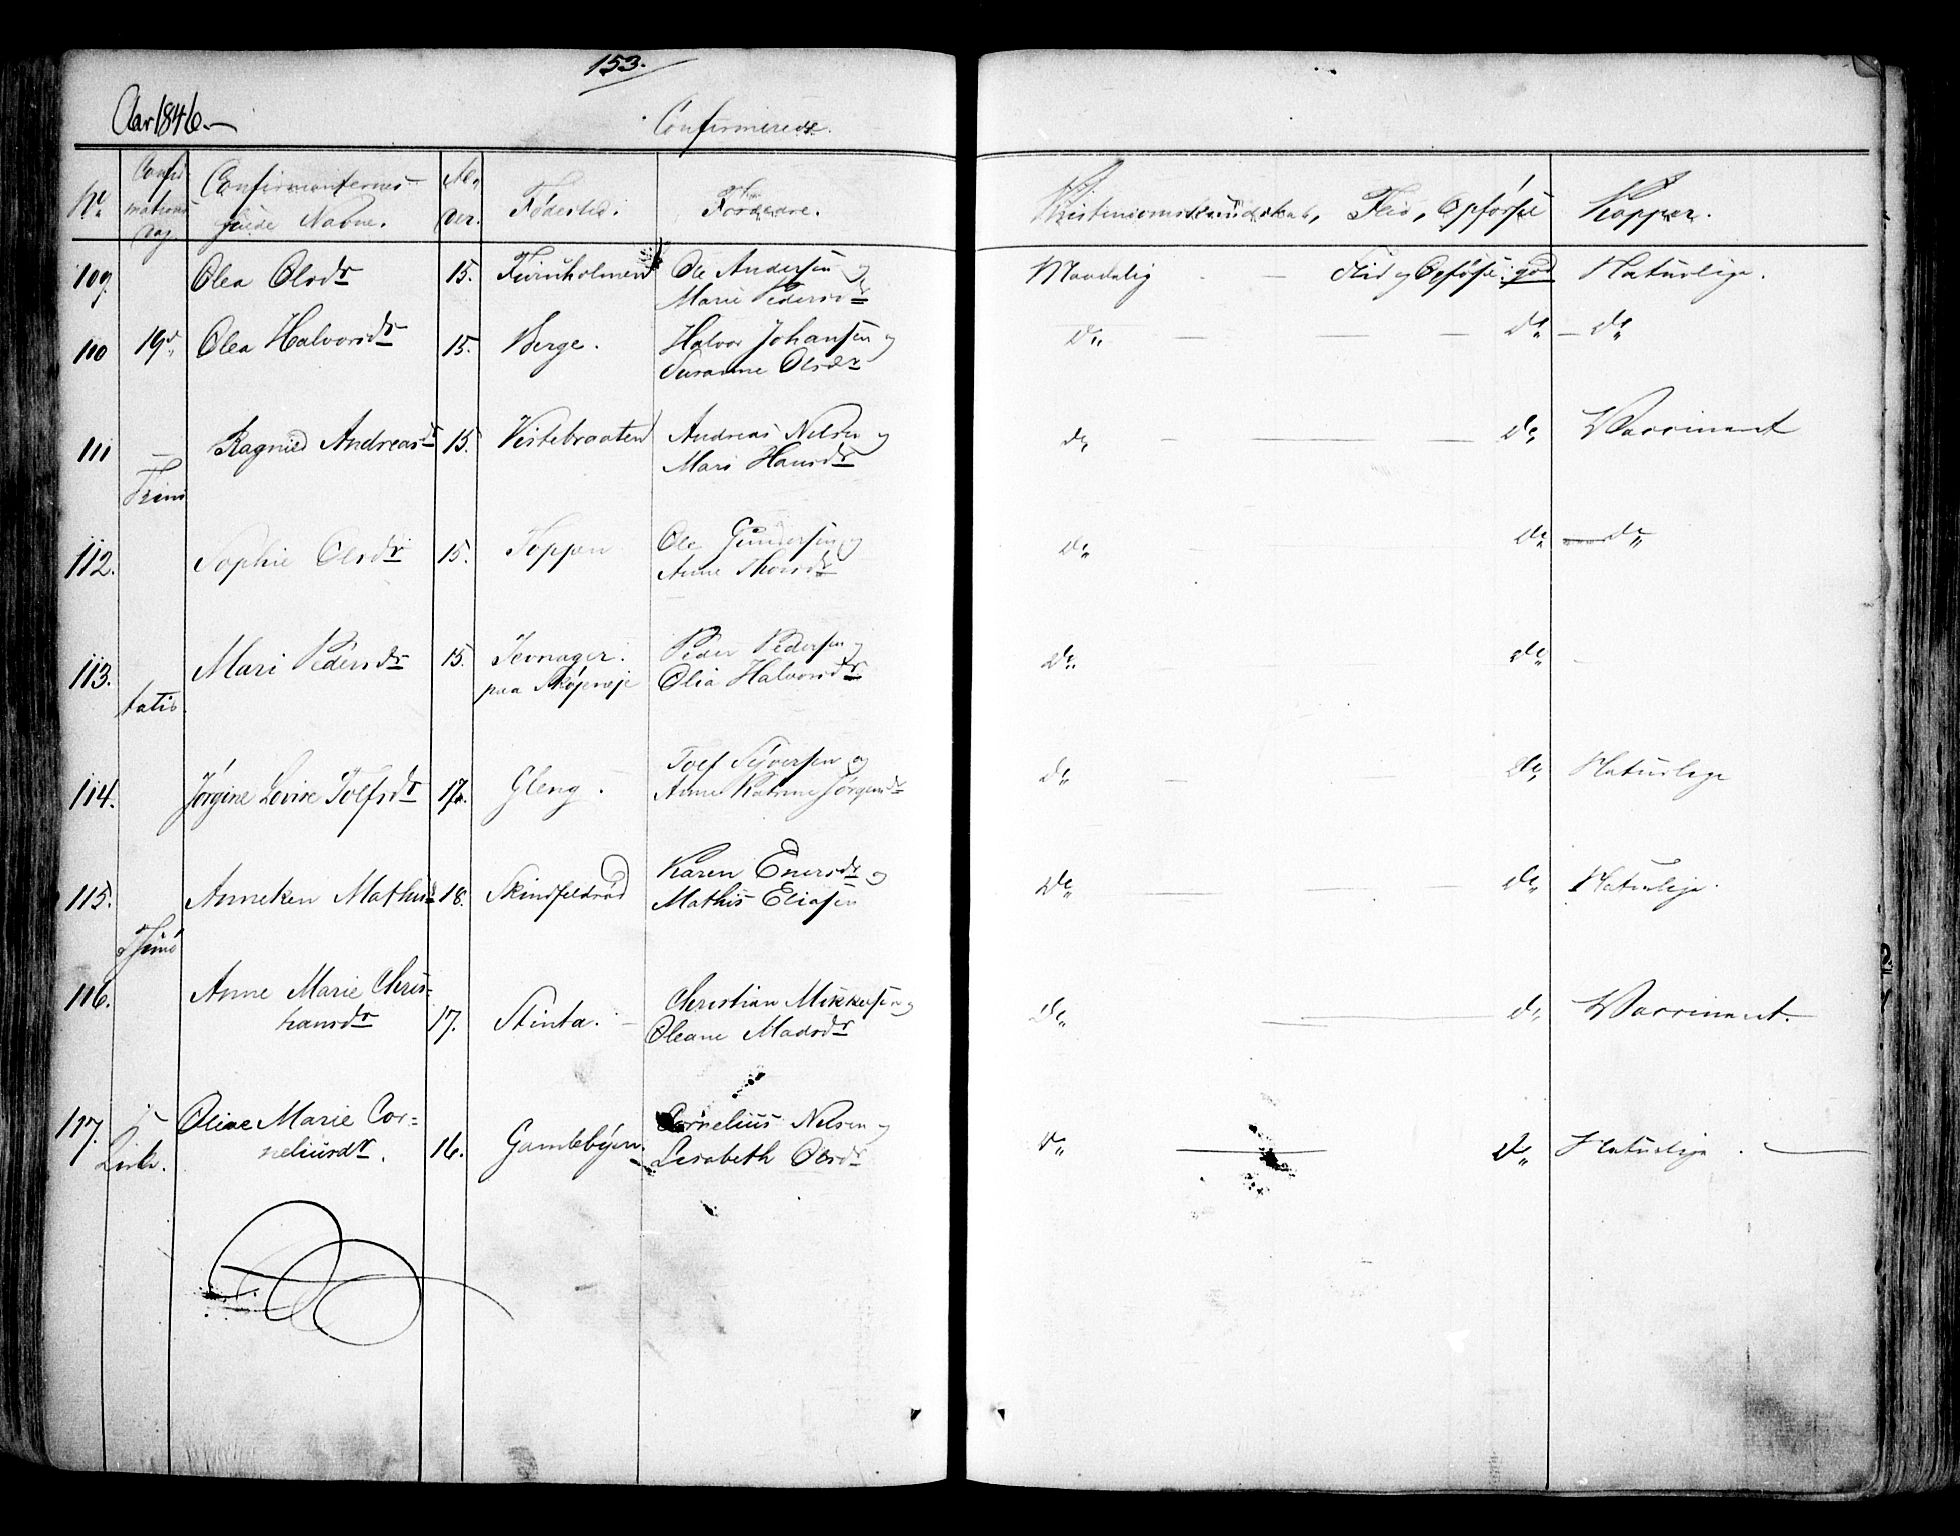 153.
Aar 1846.
Confirmerede.
No.
Confir-
mations
Dag.
Confirmanternes
fulde Navne.
Al-
der.
Fødested.
Forældre.
Kristendomskundskab, Flid, Opførsel
Kopper.
109. Olea Olsdr 15. Ole Andersen og
Marie Pedersdr
Maadelig Flid og Opførsel god Naturlige.
110 19d. Olea Halvorsdr 15. Berge. Halvor Johansen og
Susanne Olsdr
Do Do Do
111 Ragnild Andreasdr 15. Vestebraaten Andreas Nilsen og
Mari Hansdr
Trini
Do Do Vaccineret
112. Sophie Olsdr 15. Toppen Ole Gundersen og
Anne Thorsdr
Do Do Do
113. Mari Pedersdr 15. Jevnager. Peder Pedersen og
paa Olia Halvorsdr
tatis.
Do Do
114. Jørgine Lovise Tolfsdr 17. Gleng. Tolf Syversen og
Anne Katrine Jørgensdr
Do Do Naturlige
115. Anneken Mathisdr 18. Skindfeldrød Karen Enersdr og
Mathis Eliasen
Do Do Naturlige.
116. Anne Marie Chris-
tiansdr 17. Stinta. Christian Mikkelsen og
Oleane Madsdr
Do Do Vaccineret.
117. i Oline Marie Cor-
neliusdr. 16. Gamlebyen Cornelius Nilsen og
Lisabeth Olsdr
Do Do Naturlige.